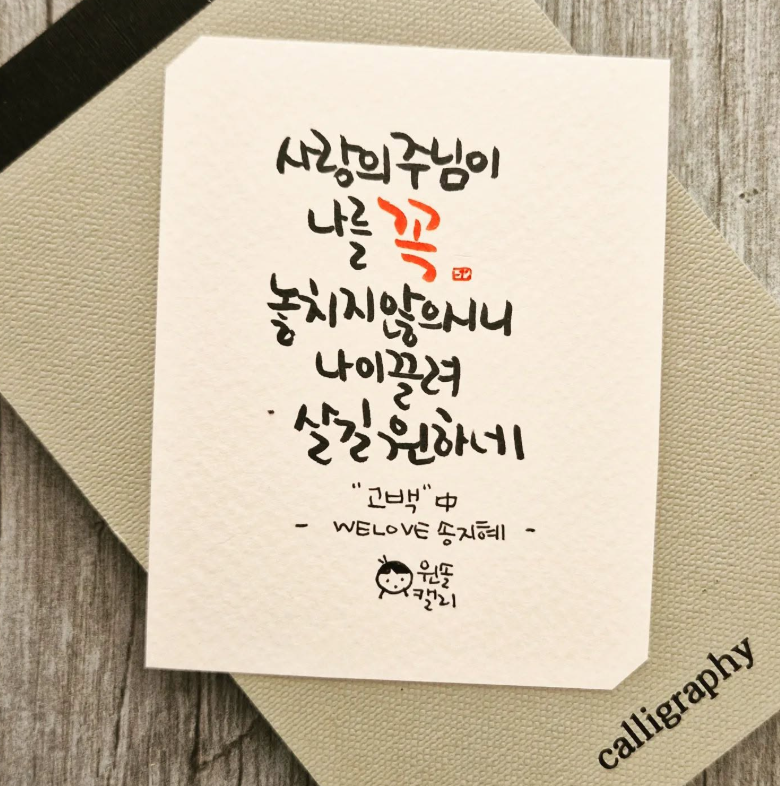 사랑의 주님이
나를 꼭
놓치지 않으시니
나 이끌려
살길 원하네
"고백" 中
- WELOVE 송지혜 -
원똘
캘리
calligraphy